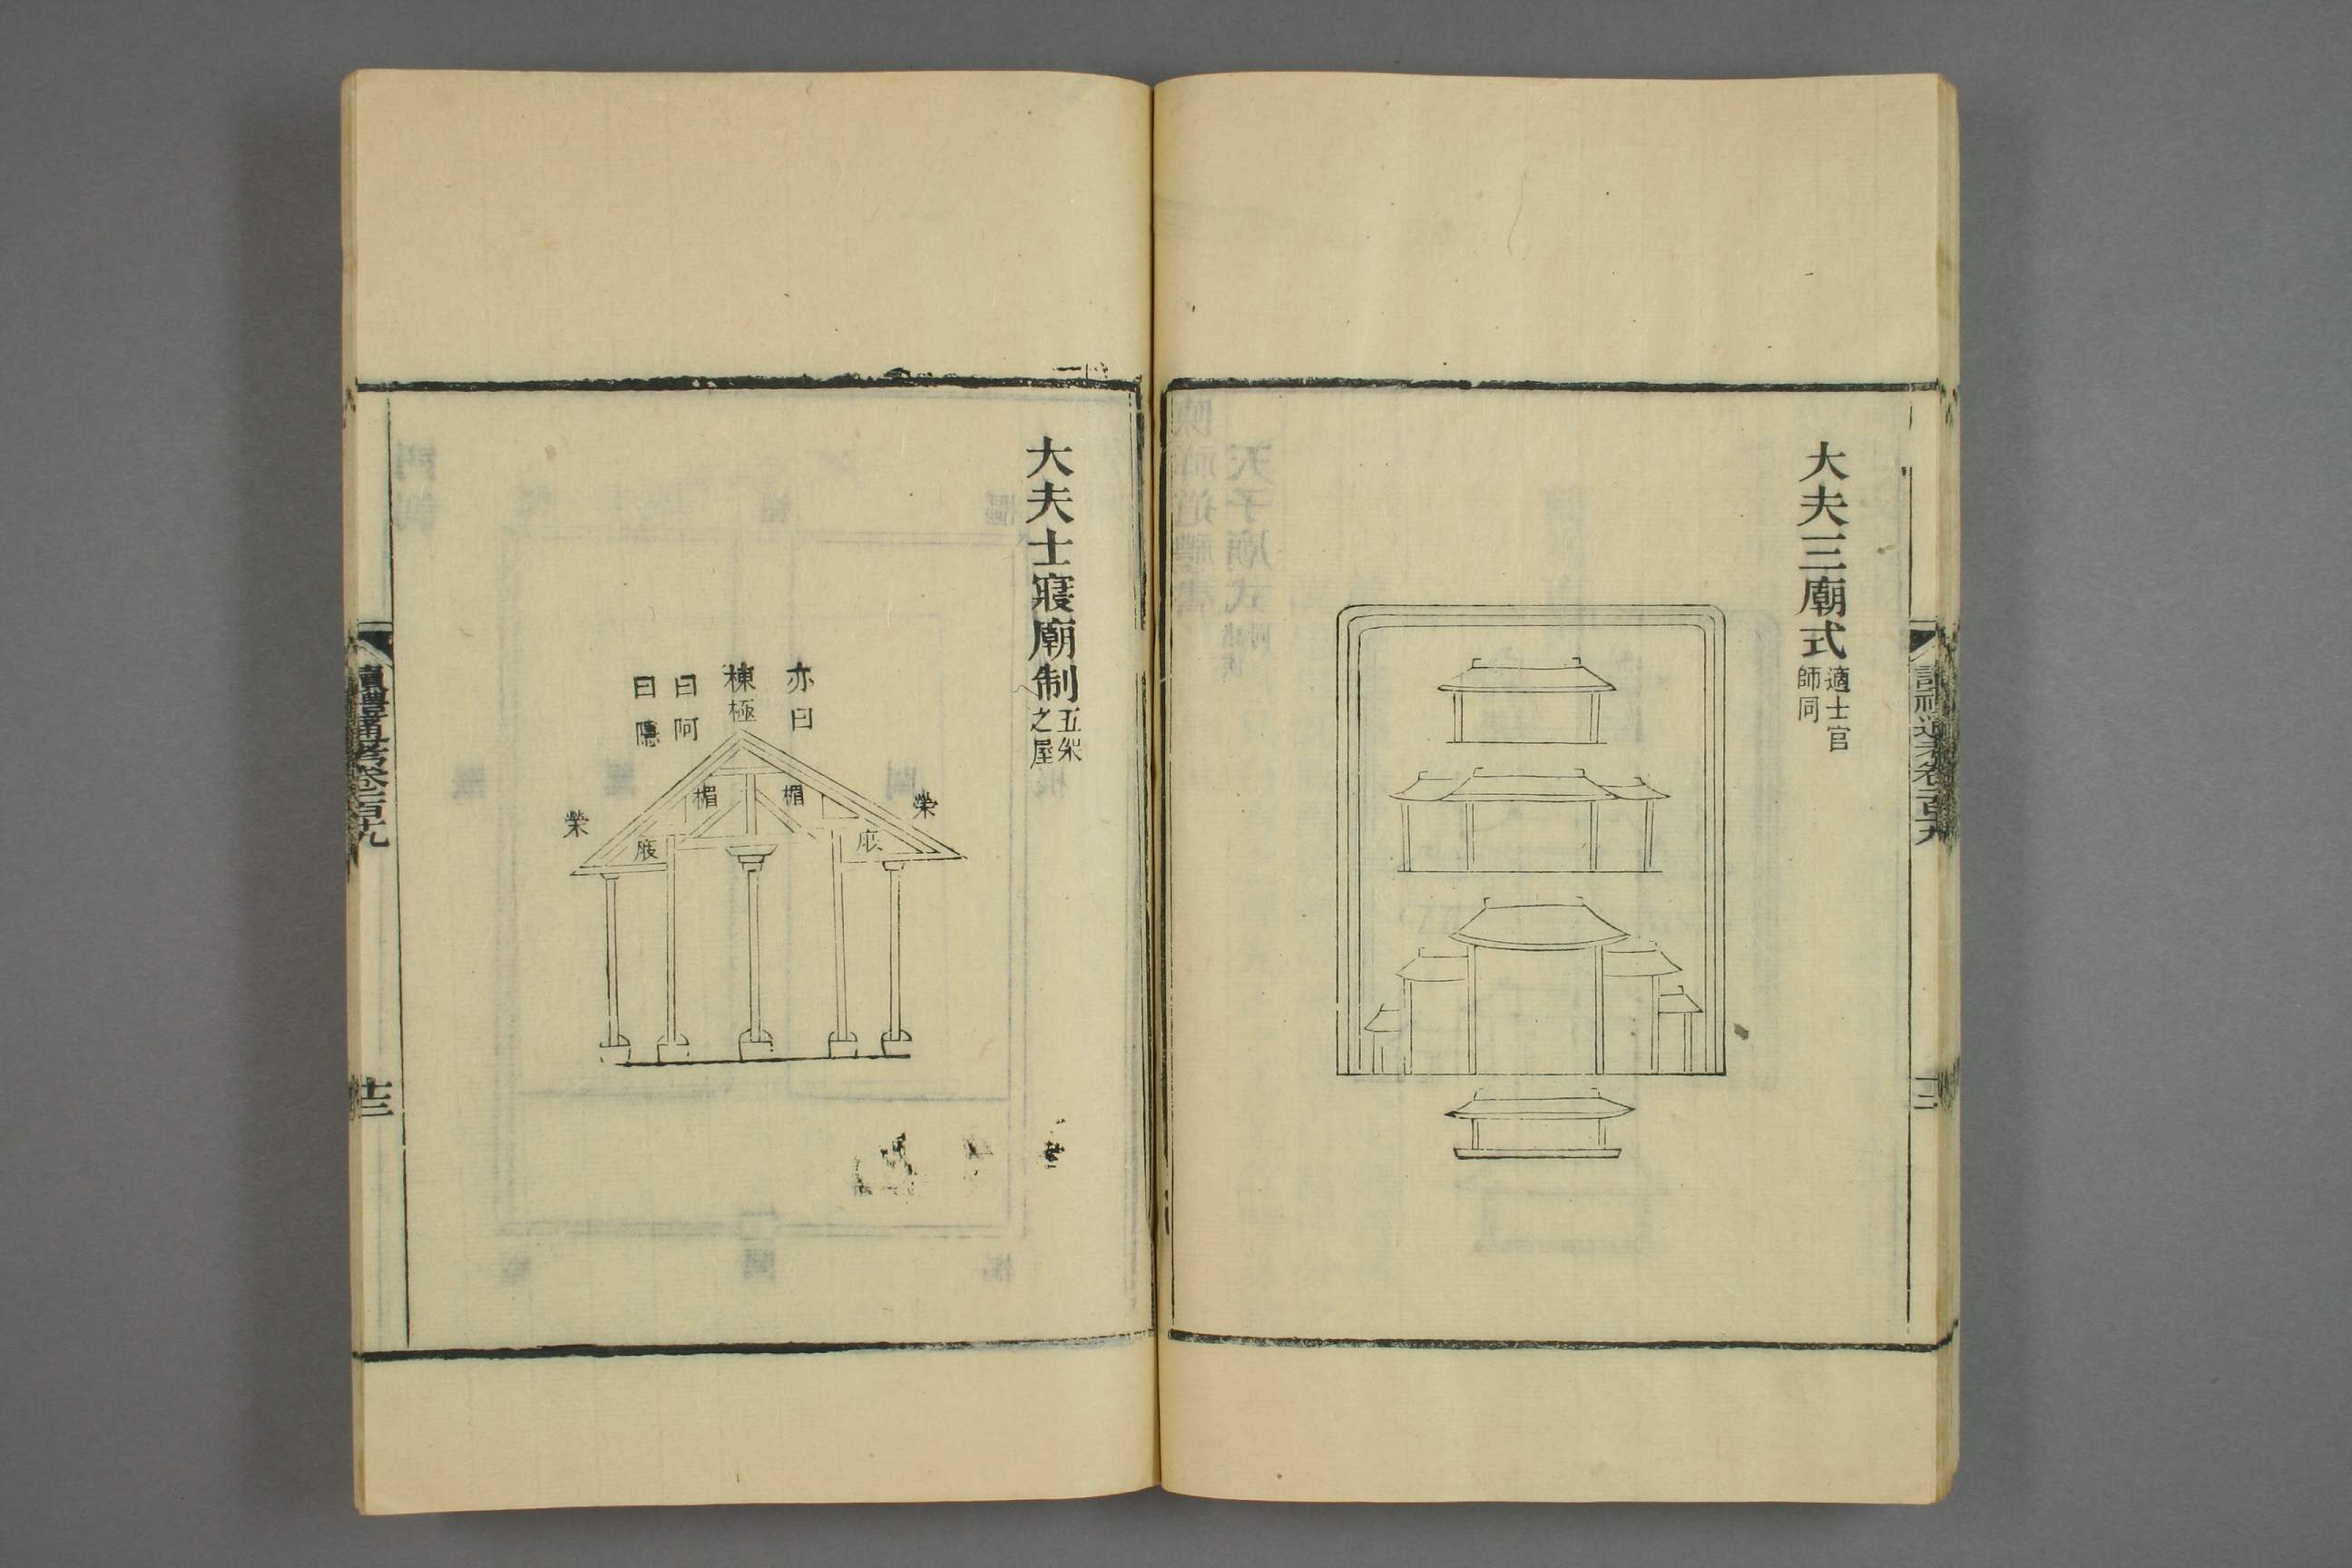 大夫三廟式
適士官
師同
通考卷一百十九
大夫士寢廟制
五架
之屋
亦曰
棟極
曰阿
曰隱
榮
楣
楣
榮
庪
庪
讀禮通考卷一百十九
十三